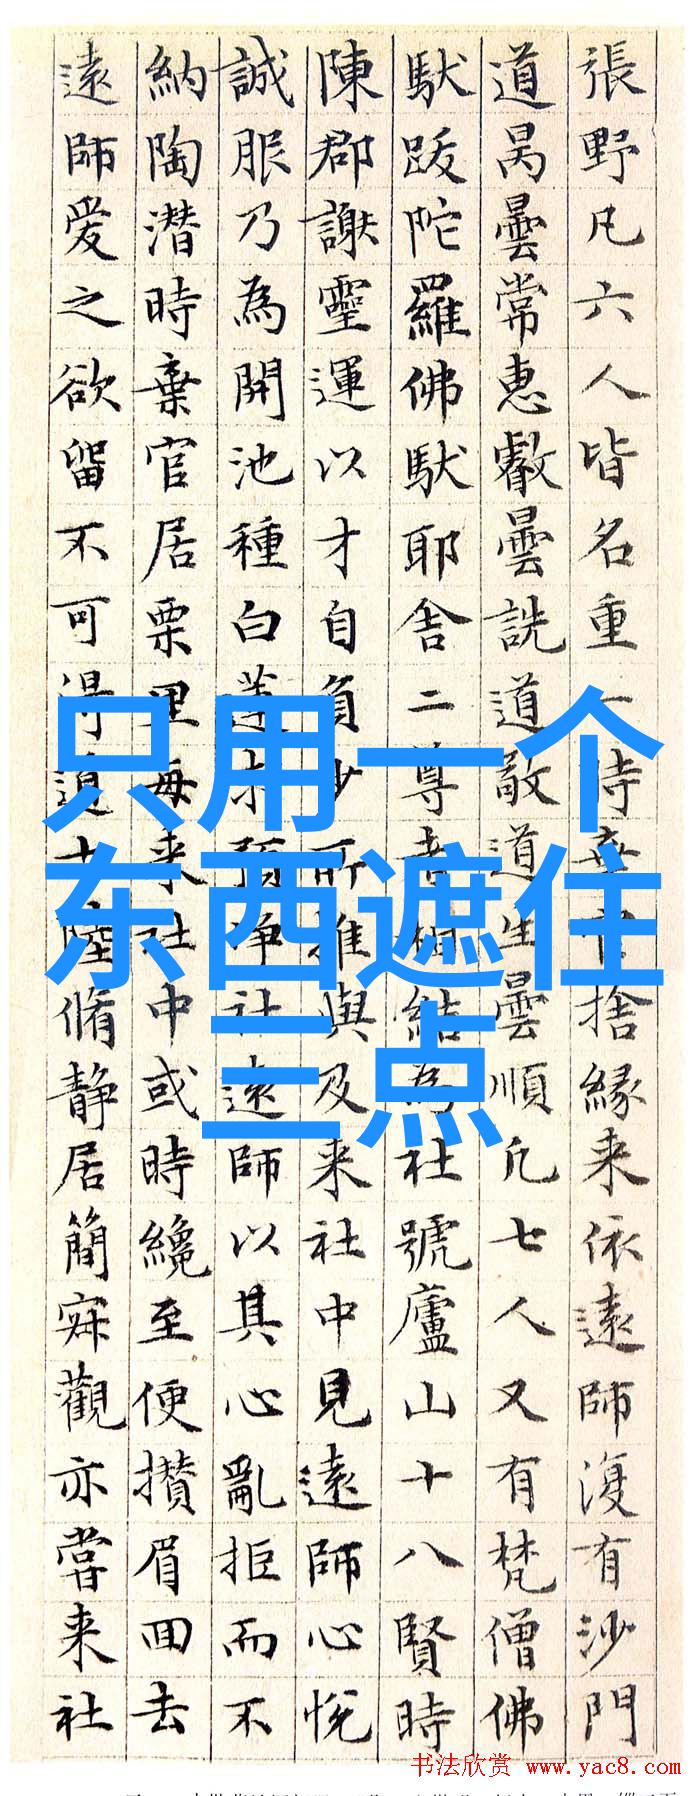 張野凡六人皆名重一時棄官捨緣来依遠師復有沙門
道昺曇常惠叡曇詵道敬道生曇順凡七人又有梵僧佛
馱跋陀羅佛馱耶舍二尊者相結為社號廬山十八賢時
陳郡謝靈運以才自負少所推與及来社中見遠師心悅
誠服乃為開池種白蓮求預淨社遠師以其心亂拒而不
納陶潛時棄官居栗里每来社中或時纔至便攢眉回去
遠師爱之欲留不可得道士陸脩静居簡寂觀亦嘗来社
只用一个
东西遮住
三点
书法欣赏 www.yac8.com